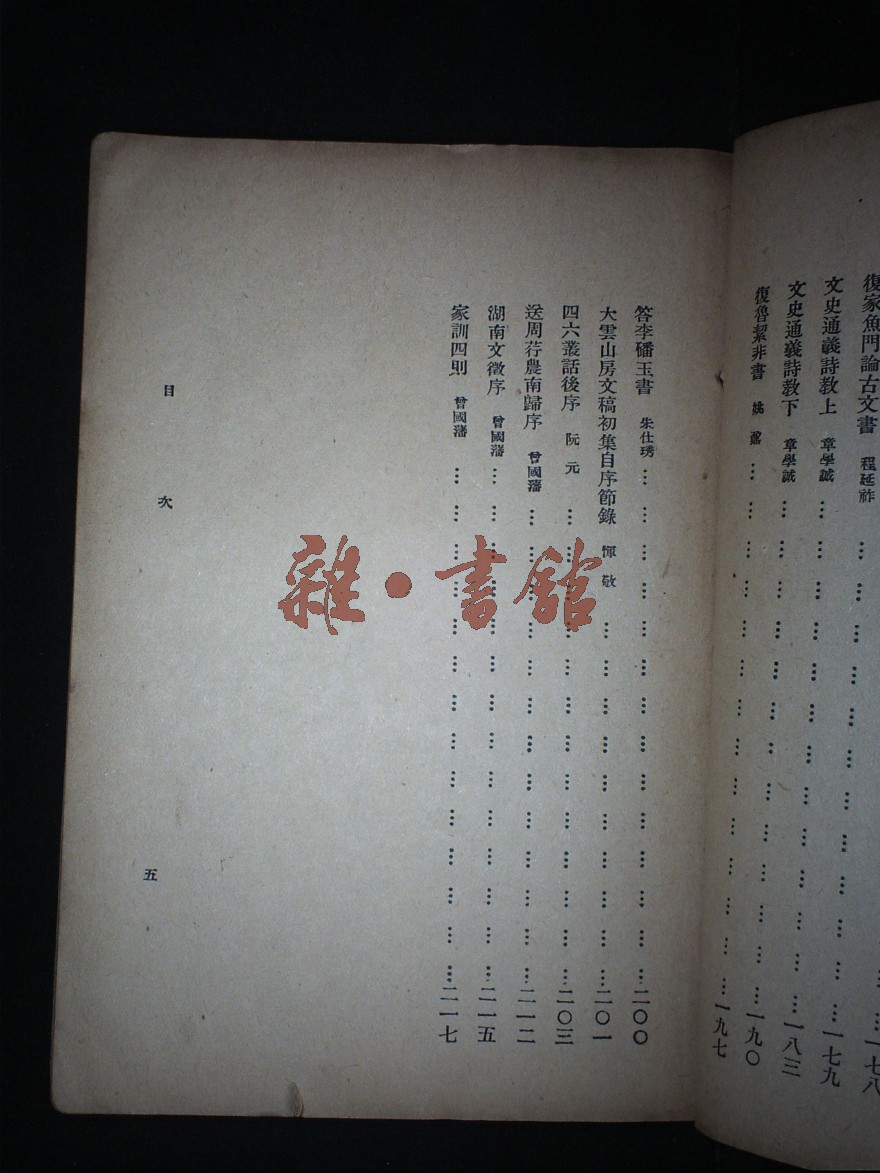 復家魚門論古文書 程延祚 … … … … … … … … … … … … … 一七八
文史通義詩教上 章學誠 … … … … … … … … … … … … … 一七九
文史通義詩教下 章學誠 … … … … … … … … … … … … … 一八三
復魯絜非書 姚鼐 … … … … … … … … … … … … … … 一九〇
一九七
答李磻玉書 朱仕琇 … … … … … … … … … … … … … … 二〇〇
大雲山房文稿初集自序節錄 惲敬 … … … … … … … … … … 二〇一
四六叢話後序 阮元 … … … … … … … … … … … … … 二〇三
送周荇農南歸序 曾國藩 … … … … … … … … … … … … … 二一二
湖南文徵序 曾國藩 … … … … … … … … … … … … … … 二一五
家訓四則 曾國藩 … … … … … … … … … … … … … … 二一七
目 次
五
雜·書館